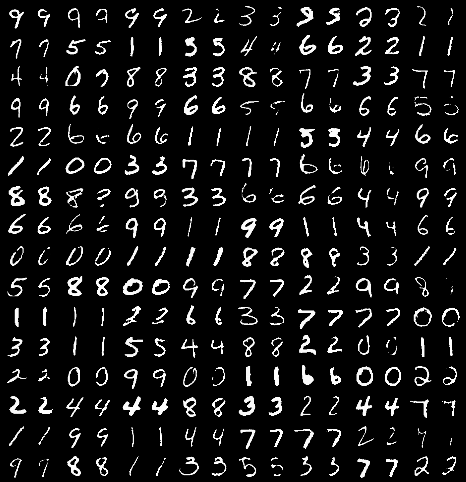 9 9 9 9 9 9 2 2 3 3 5 5 2 3 2 1
7 7 5 5 1 1 5 5 4 6 6 2 2 1 1
4 4 0 7 8 8 3 3 8 8 7 7 3 3 7 7
9 9 6 6 9 9 6 6 5 5 6 6 6 6 5 5
2 2 6 6 6 1 1 1 1 5 5 4 4 6 6
1 1 0 0 3 3 7 7 7 7 6 6 6 9 9
8 8 8 ? 9 9 3 3 6 6 6 6 4 4 9 9
6 6 6 6 9 9 1 1 9 9 1 1 4 4 6 6
0 0 0 0 1 1 1 1 8 8 8 8 3 3 1 1
5 5 8 8 0 0 9 9 7 7 2 2 9 9 8
1 1 1 1 2 2 6 6 3 3 7 7 7 7 0 0
3 3 1 1 5 5 4 4 8 8 2 2 0 0 1 1
2 2 0 0 9 9 0 0 1 1 6 6 0 0 2 2
2 2 4 4 4 4 8 8 3 3 2 2 4 4 7 7
1 1 9 9 1 1 4 4 7 7 7 7 2 2 4
9 9 8 8 1 1 3 3 5 5 3 3 7 7 2 2